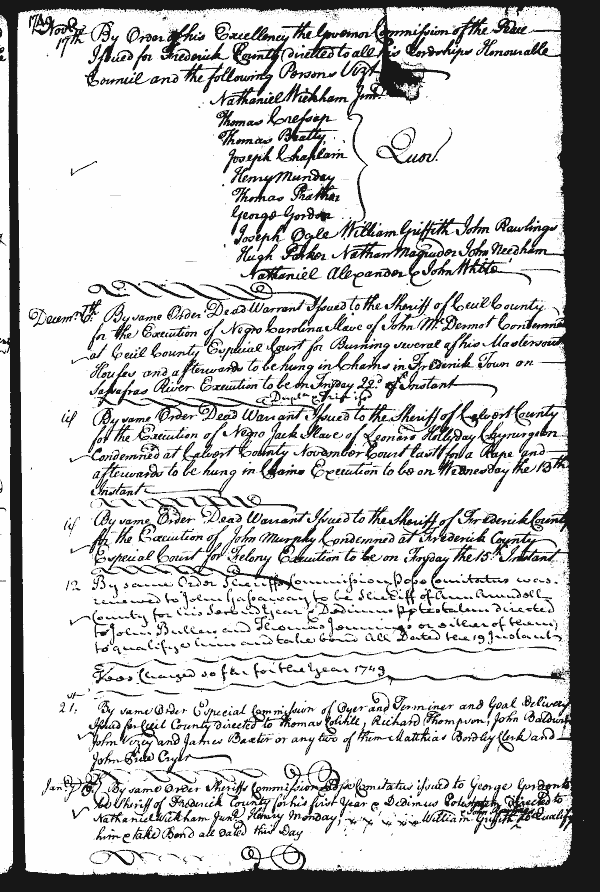 1749
Novr. 17th By Order of his Excellency the Governor Commission of the Peace
Issued for Frederick County directed to all his Lordships Honourable
Council and the following Persons Vizt
Nathaniel Wickham Junr.
Thomas Cressap
Thomas Beatty
Joseph Chaplain
Henry Munday
Thomas Prather
George Gordon
Quor.
Joseph Ogle William Griffith John Rawlings
Hugh Parker Nathan Magruder John Needham
Nathaniel Alexander & John White
Decemr. By same Order Dead Warrant Issued to the Sheriff of Cecil County
for the Execution of Negro Carolina Slave of John McDermot Condemned
at Cecil County Especial Court for Burning several of his Masters out
Houses and afterwards to be hung in Chains in Frederick Town on
Sassafras River Execution to be on Fryday 22d. of Instant
By same Order Dead Warrant Issued to the Sheriff of Calvert County
for the Execution of Negro Jack Slave of Leonard Hollyday Chyrurgeon
Condemned at Calvert County November Court last for a Rape and
afterwards to be hung in Chains Execution to be on Wednesday the 13th
Instant
By same Order Dead Warrant Issued to the Sheriff of Frederick County
for the Execution of John Murphy Condemned at Frederick County
Especial Court for Felony Execution to be on Fryday the 15th Instant
12 By same Order Sheriffs Commission & Posse Comitatus was
renewed to John Gassaway to be Sheriff of Ann Arundell
County for his Second Year & Dedimus potestatem directed
to John Bullen and Thomas Jennings or either of them
to qualify him and take bond All Dated the 19 Instant
Fees Charged so far for the Year 1749
21st. By same Order Especial Commission of Oyer and Terminer and Goal Delivery
Issued for Cecil County directed to Thomas Colvill, Richard Thompson, John Baldwin
John Vezey and James Baxter or any two of them Matthias Bordley Clerk and
John Cryer
Janry By same Order Sheriffs Commission & Posse Comitatus issued to George Gordon to
be Sheriff of Frederick County for his first Year & Dedimus Potestatem directed to
Nathaniel Wickham Junr. Henry Munday William Griffith to qualify
him & take Bond all dated this Day